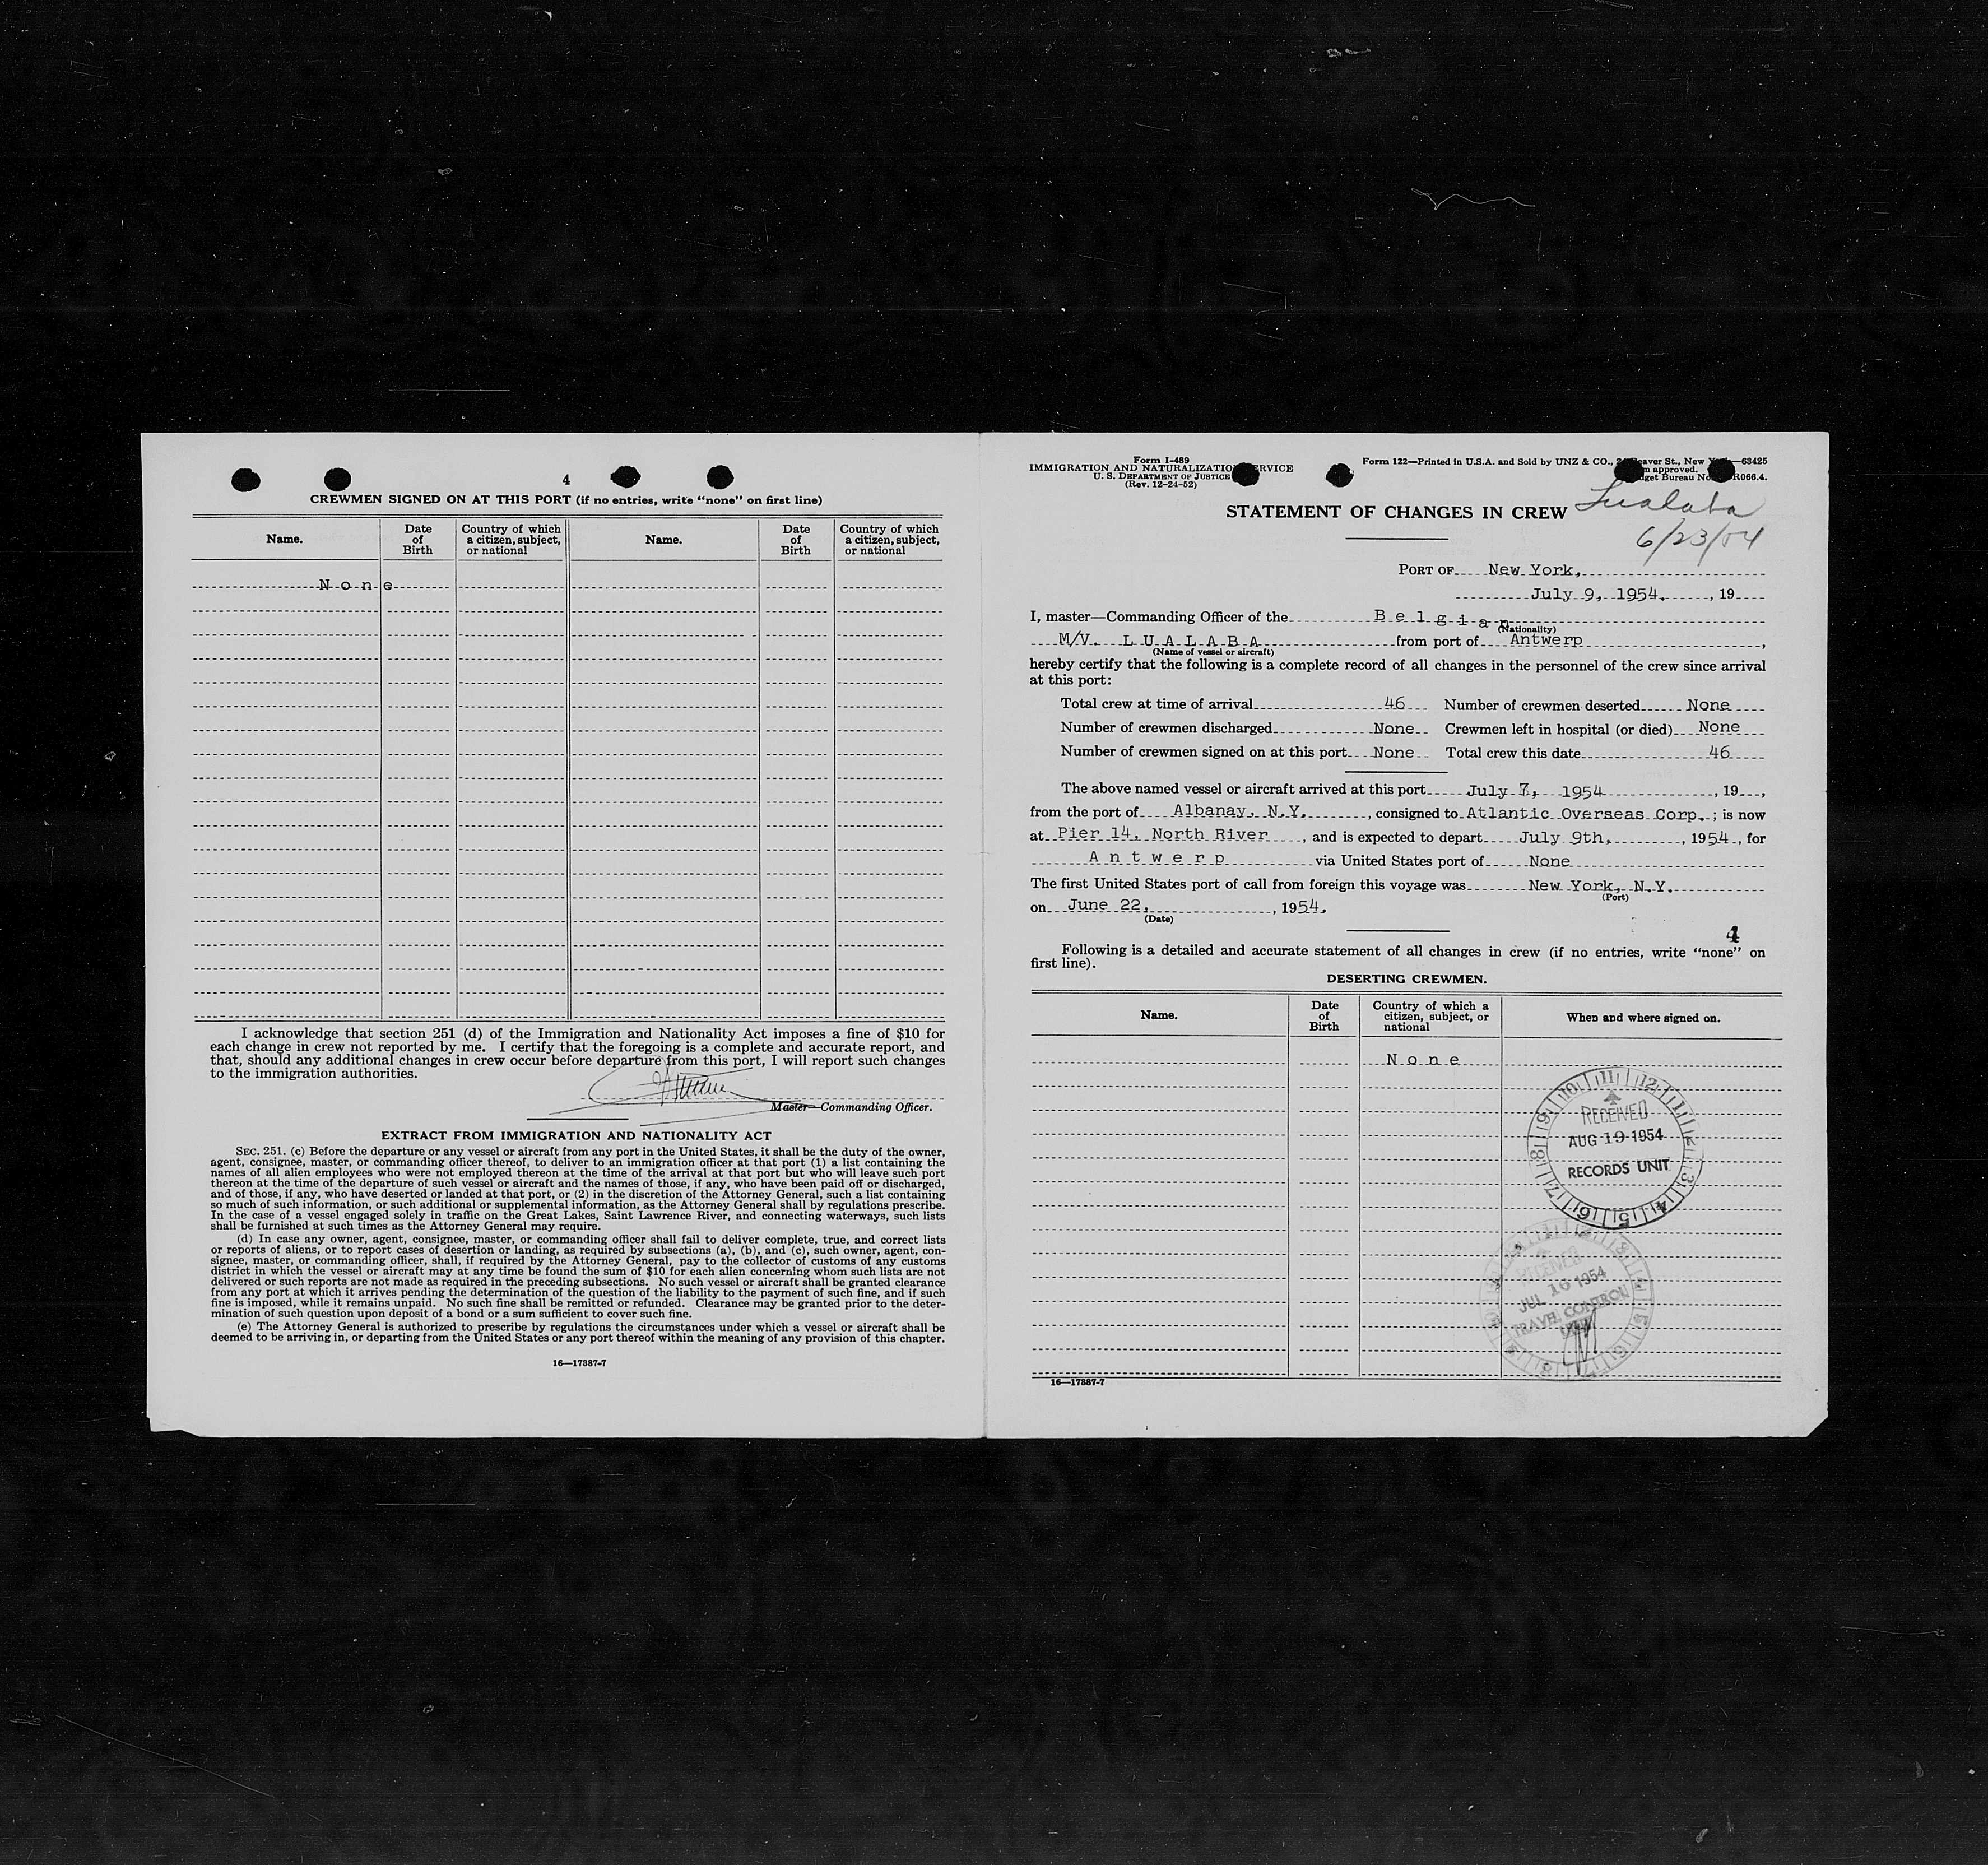 4
CREWMEN SIGNED ON AT THIS PORT (if no entries, write "none" on first line)
Name. Date of Birth Country of which a citizen, subject, or national Name. Date of Birth Country of which a citizen, subject, or national
None
I acknowledge that section 251 (d) of the Immigration and Nationality Act imposes a fine of $10 for
each change in crew not reported by me. I certify that the foregoing is a complete and accurate report, and
that, should any additional changes in crew occur before departure from this port, I will report such changes
to the immigration authorities.
Master—Commanding Officer.
EXTRACT FROM IMMIGRATION AND NATIONALITY ACT
SEC. 251. (c) Before the departure or any vessel or aircraft from any port in the United States, it shall be the duty of the owner,
agent, consignee, master, or commanding officer thereof, to deliver to an immigration officer at that port (1) a list containing the
names of all alien employees who were not employed thereon at the time of the arrival at that port but who will leave such port
thereon at the time of the departure of such vessel or aircraft and the names of those, if any, who have been paid off or discharged,
and of those, if any, who have deserted or landed at that port, or (2) in the discretion of the Attorney General, such a list containing
so much of such information, or such additional or supplemental information, as the Attorney General shall by regulations prescribe.
In the case of a vessel engaged solely in traffic on the Great Lakes, Saint Lawrence River, and connecting waterways, such lists
shall be furnished at such times as the Attorney General may require.
(d) In case any owner, agent, consignee, master, or commanding officer shall fail to deliver complete, true, and correct lists
or reports of aliens, or to report cases of desertion or landing, as required by subsections (a), (b), and (c), such owner, agent, con-
signee, master, or commanding officer, shall, if required by the Attorney General, pay to the collector of customs of any customs
district in which the vessel or aircraft may at any time be found the sum of $10 for each alien concerning whom such lists are not
delivered or such reports are not made as required in the preceding subsections. No such vessel or aircraft shall be granted clearance
from any port at which it arrives pending the determination of the question of the liability to the payment of such fine, and if such
fine is imposed, while it remains unpaid. No such fine shall be remitted or refunded. Clearance may be granted prior to the deter-
mination of such question upon deposit of a bond or a sum sufficient to cover such fine.
(e) The Attorney General is authorized to prescribe by regulations the circumstances under which a vessel or aircraft shall be
deemed to be arriving in, or departing from the United States or any port thereof within the meaning of any provision of this chapter.
16—17387-7
Form I-489
IMMIGRATION AND NATURALIZATION SERVICE
U. S. DEPARTMENT OF JUSTICE
(Rev. 12-24-52)
Form 122—Printed in U.S.A. and Sold by UNZ & CO., St., New —63425
approved.
Bureau No. R066.4.
STATEMENT OF CHANGES IN CREW
Lualaba
6/23/54
PORT OF New York,
July 9, 1954. , 19
I, master—Commanding Officer of the Belgian
(Nationality)
M/V. LUALABA from port of Antwerp ,
(Name of vessel or aircraft)
hereby certify that the following is a complete record of all changes in the personnel of the crew since arrival
at this port:
Total crew at time of arrival 46 Number of crewmen deserted None
Number of crewmen discharged None Crewmen left in hospital (or died) None
Number of crewmen signed on at this port None Total crew this date 46
The above named vessel or aircraft arrived at this port July 7, 1954 , 19 ,
from the port of Albanay, N.Y. , consigned to Atlantic Overseas Corp. ; is now
at Pier 14, North River , and is expected to depart July 9th, , 1954 , for
Antwerp via United States port of None
The first United States port of call from foreign this voyage was New York, N.Y.
(Port)
on June 22, , 1954.
(Date)
4
Following is a detailed and accurate statement of all changes in crew (if no entries, write "none" on
first line).
DESERTING CREWMEN.
Name. Date of Birth Country of which a citizen, subject, or national When and where signed on.
None
10 11 12 1 2 3 4 5 6 7 8 9
RECEIVED
AUG 19 1954
RECORDS UNIT
RECEIVED
JUL 10 1954
TRAVEL CONTROL
16—17387-7